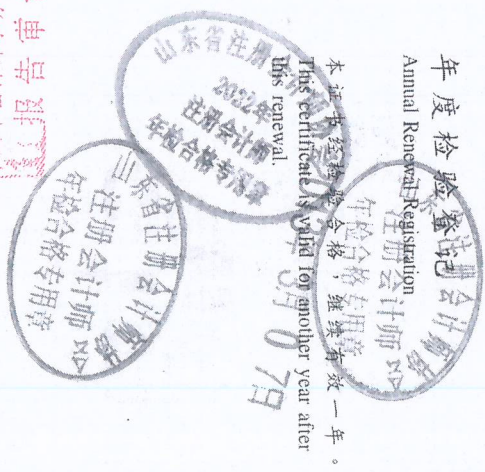 年度检验登记
Annual Renewal Registration
本证书经检验合格，继续有效一年。
This certificate is valid for another year after
this renewal.
山东省注册会计师协会
2022年
注册会计师
年检合格专用章
3月07日
山东省注册会计师协会
注册会计师
年检合格专用章
山东省注册会计师协会
注册会计师
年检合格专用章
报告